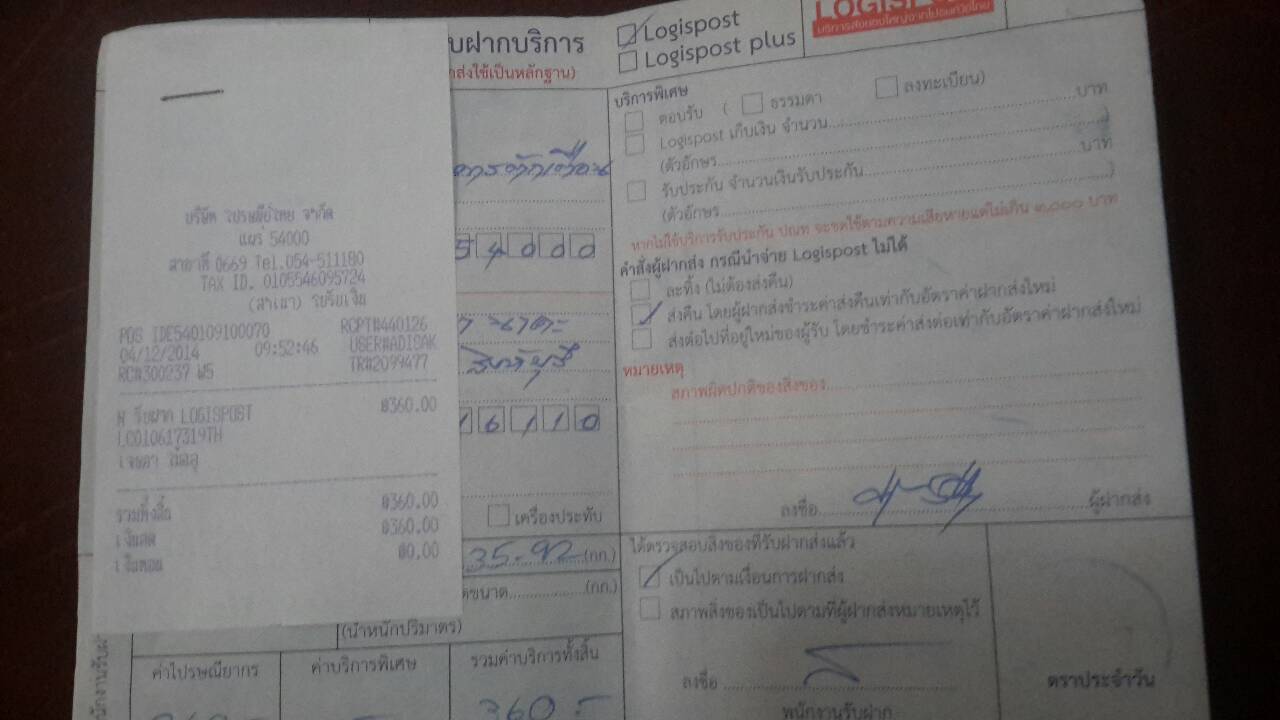 บริษัท ไปรษณีย์ไทย จำกัด
แพร่ 54000
สาขาที่ 0669 Tel.054-511180
TAX ID. 0105546095724
(สำเนา) ใบรับเงิน
POS IDE540109100070 RCPT#440126
04/12/2014 09:52:46 USER#ADISAK
RC#300237 W5 TR#2099477
N รับฝาก LOGISPOST ฿360.00
LC010617319TH
รวมทั้งสิ้น ฿360.00
เงินสด ฿360.00
เงินทอน ฿0.00
บฝากบริการ
Logispost
Logispost plus
บริการส่งของใหญ่จากไปรษณีย์ไทย
54000
16110
เครื่องประทับ
35-92 (กก.)
(กก.)
(น้ำหนักปริมาตร)
ค่าไปรษณียากร
ค่าบริการพิเศษ
รวมค่าบริการทั้งสิ้น
360.-
บริการพิเศษ
ตอบรับ ( ธรรมดา ลงทะเบียน)
Logispost เก็บเงิน จำนวน บาท
(ตัวอักษร )
รับประกัน จำนวนเงินรับประกัน บาท
(ตัวอักษร )
หากไม่ใช้บริการรับประกัน ปณท จะชดใช้ตามความเสียหายแต่ไม่เกิน ๒,๐๐๐ บาท
คำสั่งผู้ฝากส่ง กรณีนำจ่าย Logispost ไม่ได้
ละทิ้ง (ไม่ต้องส่งคืน)
ส่งคืน โดยผู้ฝากส่งชำระค่าส่งคืนเท่ากับอัตราค่าฝากส่งใหม่
ส่งต่อไปที่อยู่ใหม่ของผู้รับ โดยชำระค่าส่งต่อเท่ากับอัตราค่าฝากส่งใหม่
หมายเหตุ
สภาพผิดปกติของสิ่งของ
ลงชื่อ ผู้ฝากส่ง
ได้ตรวจสอบสิ่งของที่รับฝากส่งแล้ว
เป็นไปตามเงื่อนการฝากส่ง
สภาพสิ่งของเป็นไปตามที่ผู้ฝากส่งหมายเหตุไว้
ลงชื่อ
พนักงานรับฝาก
ตราประจำวัน